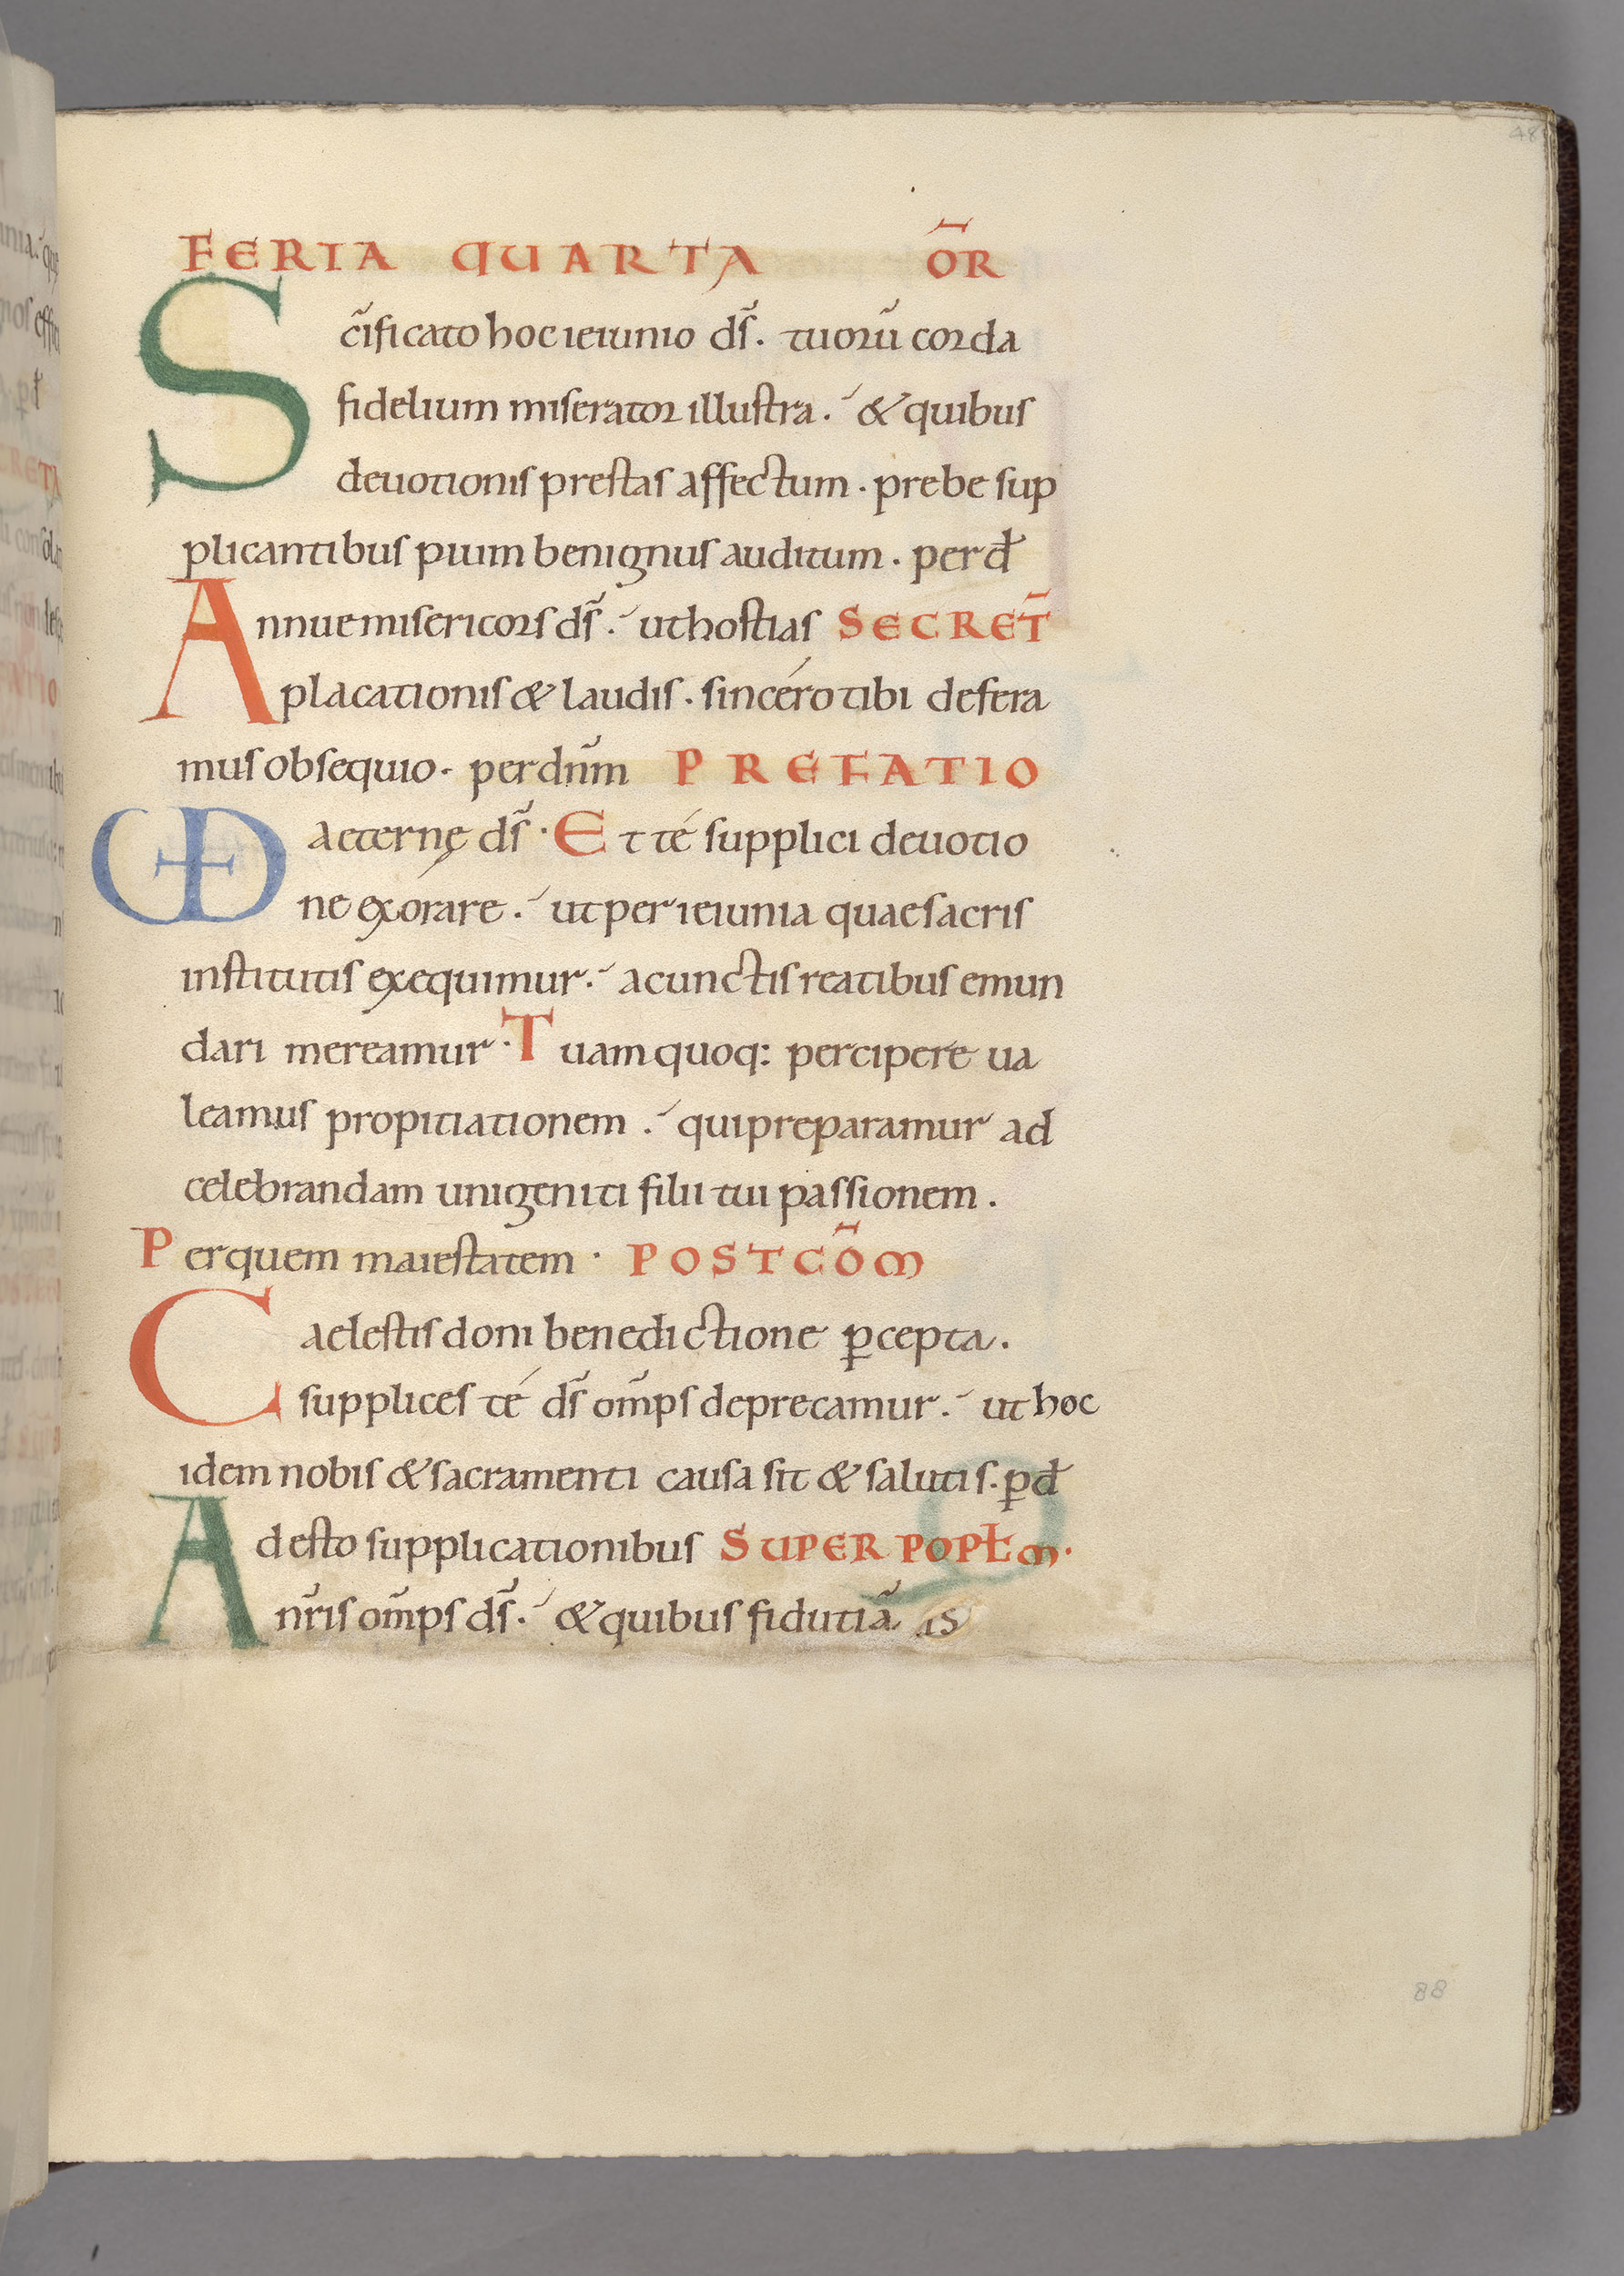 48
FERIA QUARTA OR̄
Sc̄ificato hoc ieiunio ds̄. tuorū corda
fidelium miserator illustra. & quibus
deuotionis prestas affectum. prebe sup
plicantibus pium benignus auditum. per d̄
Annue misericors ds̄. ut hostias SECRET̄
placationis & laudis. sincéro tibi defera
mus obsequio. per dn̄m PREFATIO
VD aeternę ds̄. Et té supplici deuotio
ne exorare. ut per ieiunia quae sacris
institutis exequimur. a cunctis reatibus emun
dari mereamur. Tuam quoq: percipere ua
leamus propitiationem. qui preparamur ad
celebrandam unigeniti filii tui passionem.
Per quem maiestatem. POSTCOM̄
Caelestis doni benedictione ꝑcepta.
supplices té ds̄ om̄ps deprecamur. ut hoc
idem nobis & sacramenti causa sit & salutis. ꝑ d̄
Adesto supplicationibus SUPER POPŁM.
nr̄is om̄ps ds̄. & quibus fidutiā is
88